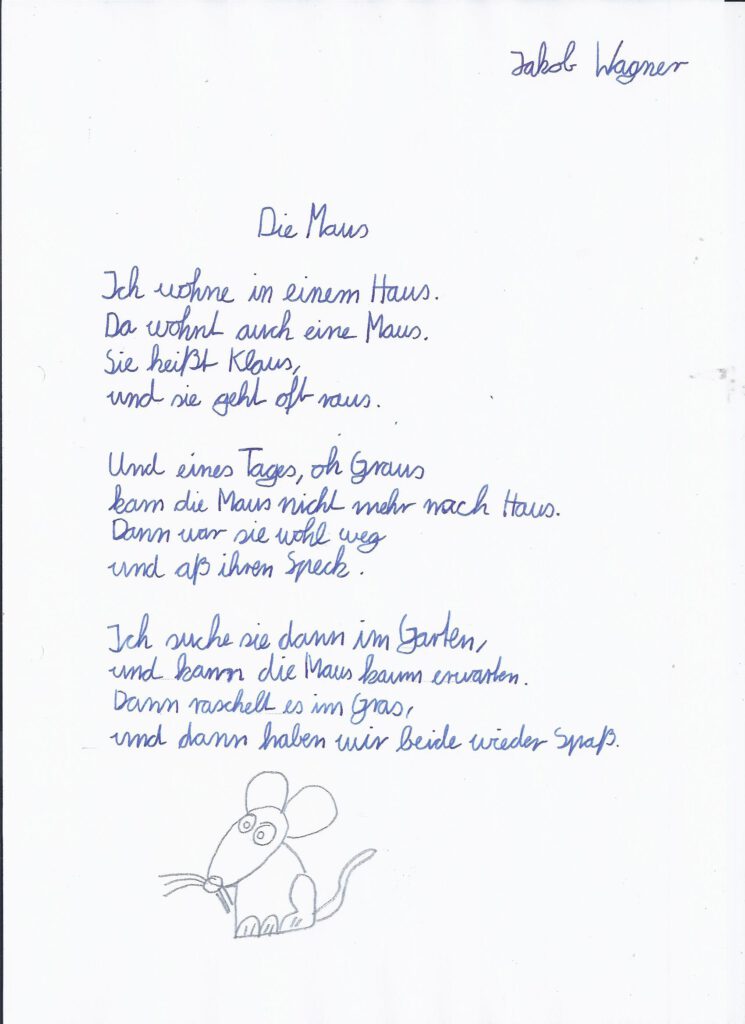 Jakob Wagner
Die Maus
Ich wohne in einem Haus.
Da wohnt auch eine Maus.
Sie heißt Klaus,
und sie geht oft raus.
Und eines Tages, oh Graus
kam die Maus nicht mehr nach Haus.
Dann war sie wohl weg
und aß ihren Speck.
Ich suche sie dann im Garten,
und kann die Maus kaum erwarten.
Dann raschelt es im Gras,
und dann haben wir beide wieder Spaß.